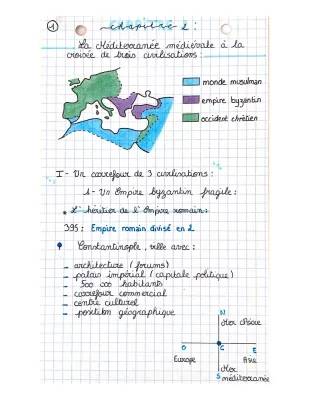 1
chapitre 2 :
La Méditerranée médiévale à la
croisée de trois civilisations :
monde musulman
empire byzantin
occident chrétien
I - Un carrefour de 3 civilisations :
1 - Un Empire byzantin fragile :
* L' héritier de l' Empire romain :
395 : Empire romain divisé en 2
Constantinople, ville avec :
- architecture (forums)
- palais impérial (capitale politique)
- 500 000 habitants
- carrefour commercial
- centre culturel
- position géographique
N
Mer Noire
O
C
E
Europe
Asie
Mer
S méditerranée